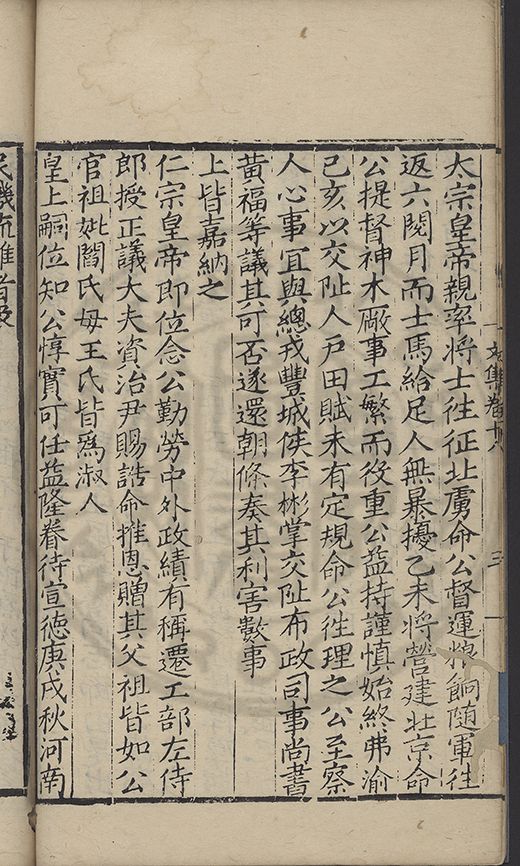 文集卷十八
三
太宗皇帝親率將士徃征北虜命公督運粮餉随軍徃
返六閱月而士馬給足人無暴擾乙未將營建北京命
公提督神木厰事工繁而役重公益持謹慎始終弗渝
己亥以交阯人戶田賦未有定規命公徃理之公至察
人心事冝與總戎豐城侯李彬掌交阯布政司事尚書
黄福等議其可否遂還朝條奏其利害數事
上皆嘉納之
仁宗皇帝即位念公勤勞中外政績有稱遷工部左侍
郎授正議大夫資治尹賜誥命推恩贈其父祖皆如公
官祖妣閻氏母王氏皆爲淑人
皇上嗣位知公惇實可任益隆眷待宣德庚戌秋河南